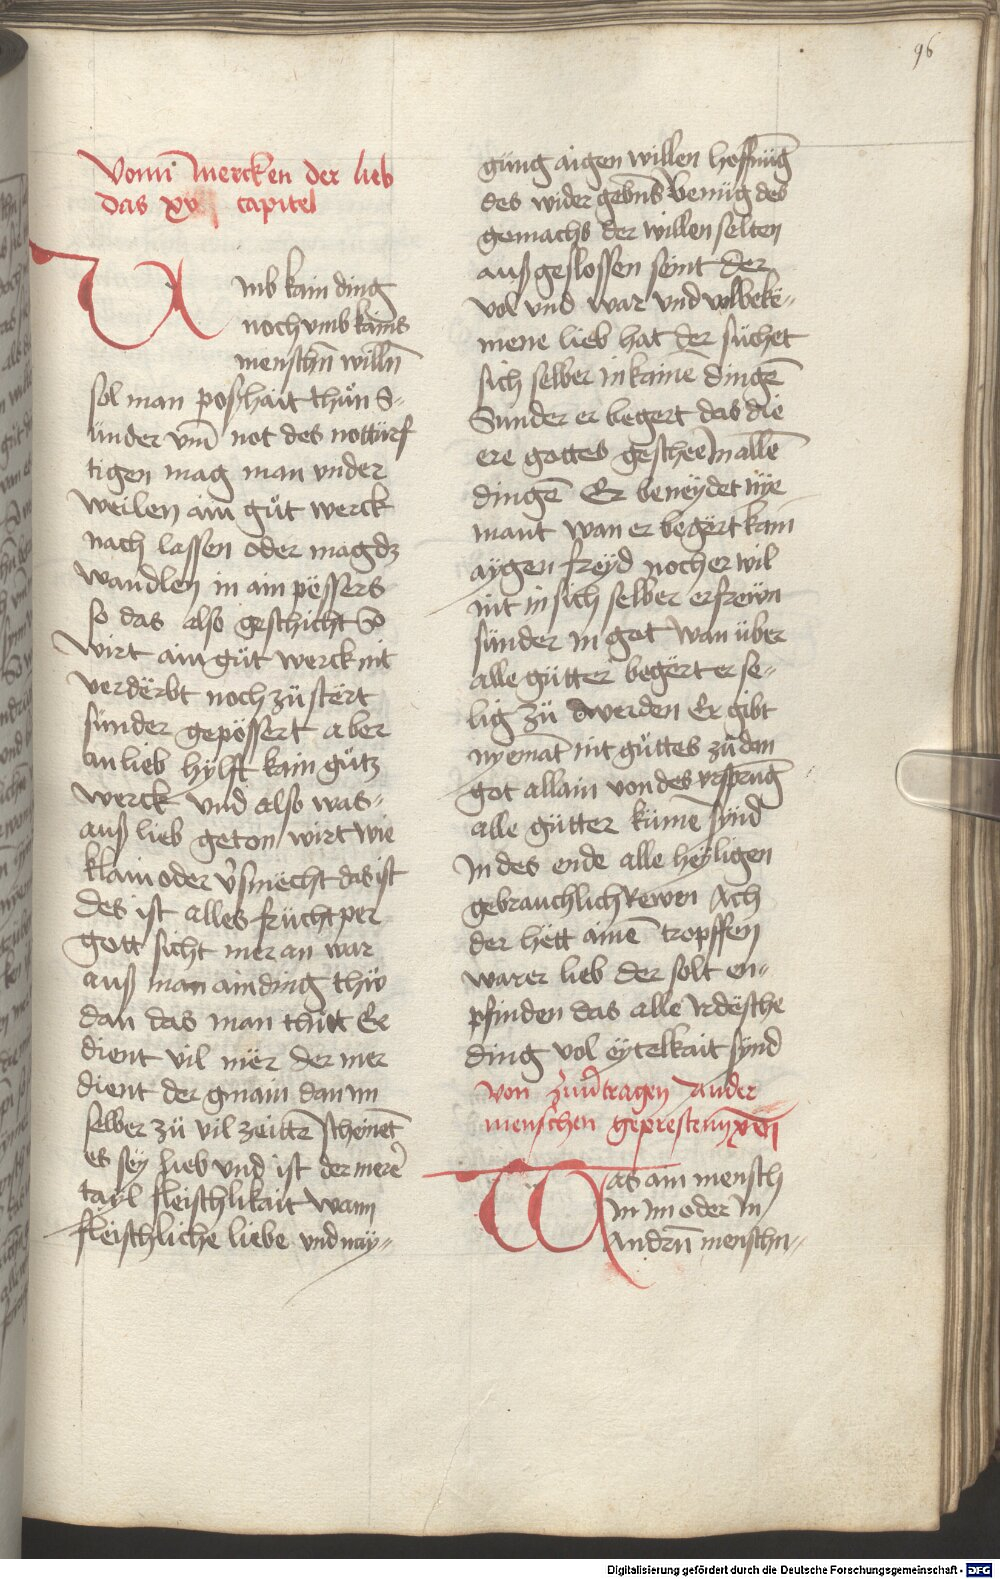 96
Vonn wercken der lieb
das xv capitel
Umb kain ding
noch vmb kains
menschn̄ willn̄
sol man poshait thůn S-
ünder vm̄ not des nottürf
tigen mag man vnder
weilen ain gůt werck
nach lassen oder mag dz
wandlen in ain pëssers
so das also geschicht So
wirt ain gůt werck nit
verdërbt noch zü stërt
sunder gepössert aber
an lieb hÿlft kain gůtz
werck vnd also was
auß lieb geton wirt wie
klain oder v̄smëcht das ist
des ist alles frücht per
gott sicht mer an war
auß man ain ding thüt
dan das man thůt Er
dient vil mër der mer
dient der gmain dan im
selber zü vil zeittn̄ scheinet
es sey lieb vnd ist der mere
tayl fleischlikait Wann
fleischliche liebe vnd nay-
güng aigen willen hoffnūg
des wider gebns̄ benüg des
gemachs der willen selten
außgeslossen seint der
vol vnd war vnd volbekē-
mene lieb hat der süchet
sich selber in kaine dingē
Sunder er begert das die
ere gottes geschee In allē
dingē Er beneydet nÿe
mant wan er begert kain
aygen freyd noch er wil
nit in sich selber erfrewn
sünder in got Wan über
alle gütter begërt er se-
lig zü werden Er gibt
nyemāt nit gůttes zü dan
got allain von des vrsprūg
alle gütter kümē sÿnd
In des ende alle heÿligen
gebrauchlich rewen Ach
der hëtt ainē tropffen
warer lieb der solt en-
pfinden das alle Irdësche
ding vol eytelkait sÿnd
von v̄tragen ander
menschen geprestenn xvi
Was ain mensch
in im oder In
Andrn̄ menschn-
Digitalisierung gefördert durch die Deutsche Forschungsgemeinschaft - DFG